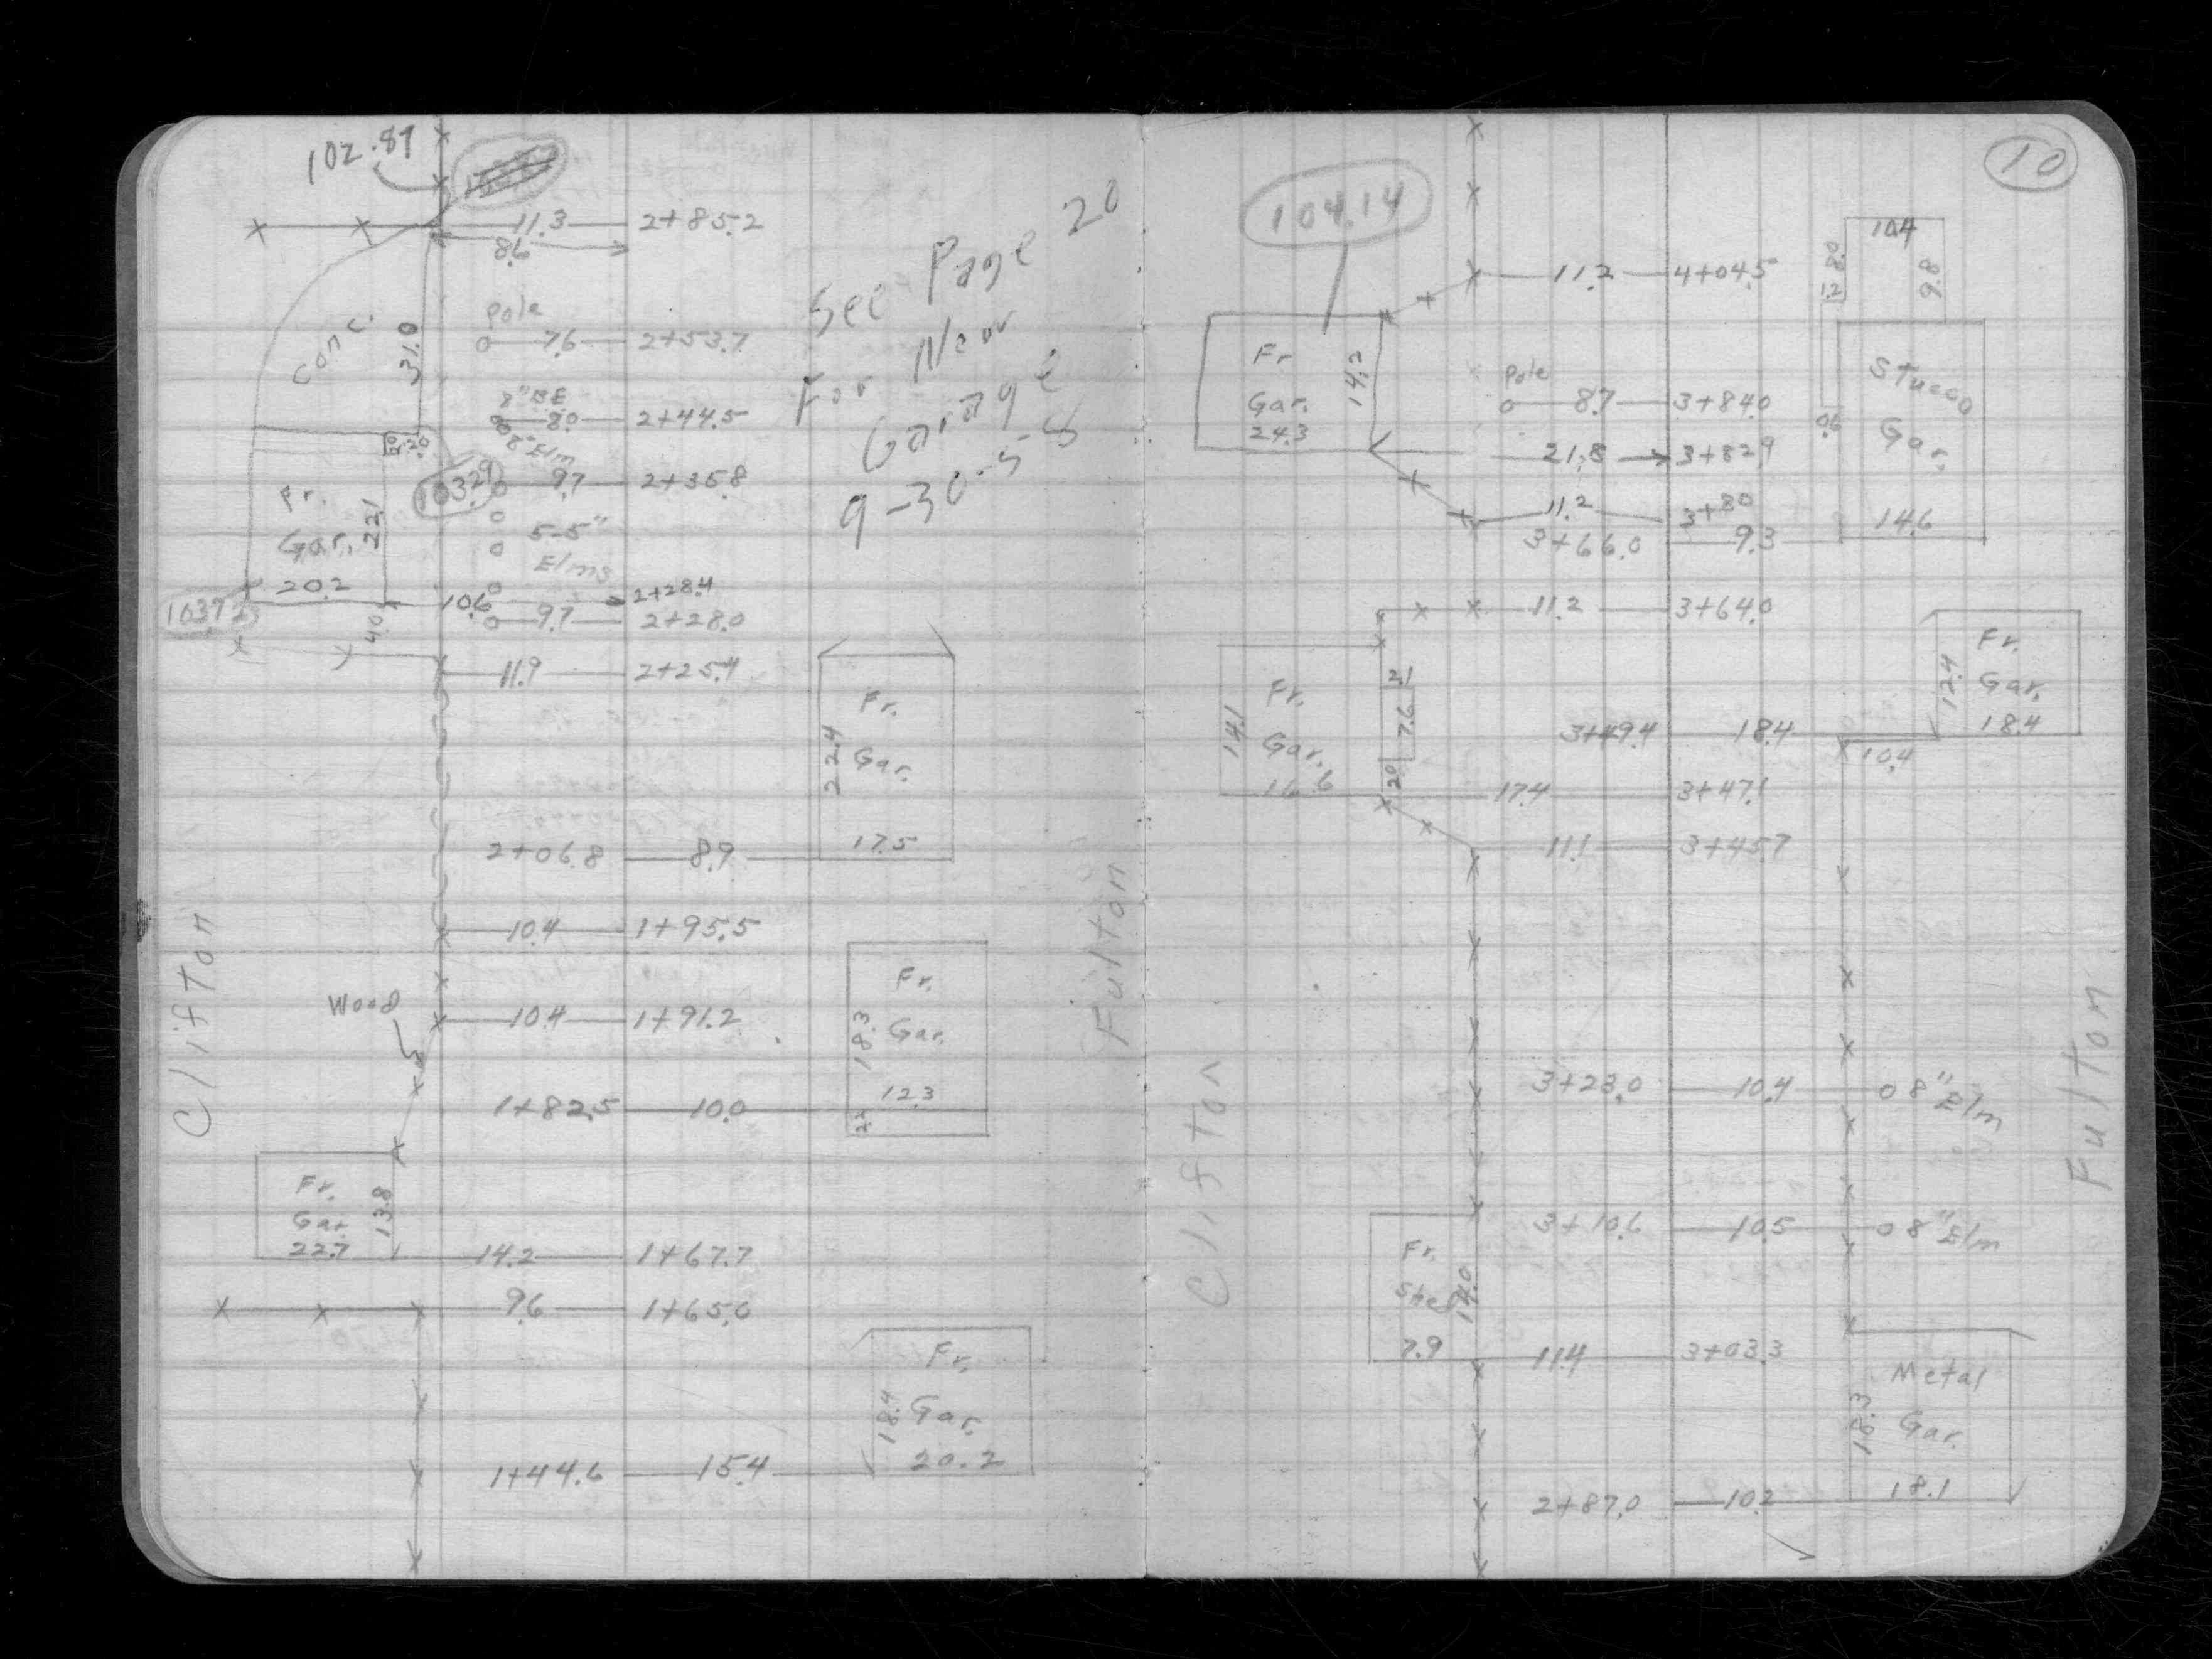 102.89
11.3 2+85.2
8.6
Conc.
31.0
Pole
7.6 2+53.7
8" BE
8.0 2+44.5
8" Elm
103.29
9.7 2+35.8
Fr.
Gar.
22.1
20.2
5-5"
Elms
10.6 2+28.4
103.72
4.0
9.7 2+28.0
11.9 2+25.4
See Page 20
For New
Garage
9-30-58
Fr.
Gar.
22.4
17.5
2+06.8 8.9
10.4 1+95.5
Wood
10.4 1+91.2
Fr.
Gar.
18.3
12.3
2.2
1+82.5 10.0
Fr.
Gar.
22.7
13.8
14.2 1+67.7
9.6 1+65.0
Fr.
Gar.
18.4
20.2
1+44.6 15.4
Clifton
Fulton
10
104.14
11.2 4+04.5
10.4
8.0
1.2
9.8
Fr
Gar.
24.3
14.2
Pole
8.7 3+84.0
21.8 3+82.9
11.2 3+80
3+66.0 9.3
Stucco
Gar.
14.6
0.6
11.2 3+64.0
Fr.
Gar.
14.1
16.6
2.1
7.6
2.0
Fr.
Gar.
12.4
18.4
3+49.4 18.4
10.4
17.4 3+47.1
11.1 3+45.7
3+23.0 10.4 8" Elm
3+10.6 10.5 8" Elm
Fr.
Shed
14.0
7.9
11.4 3+03.3
Metal
Gar.
18.3
18.1
2+87.0 10.2
Clifton
Fulton